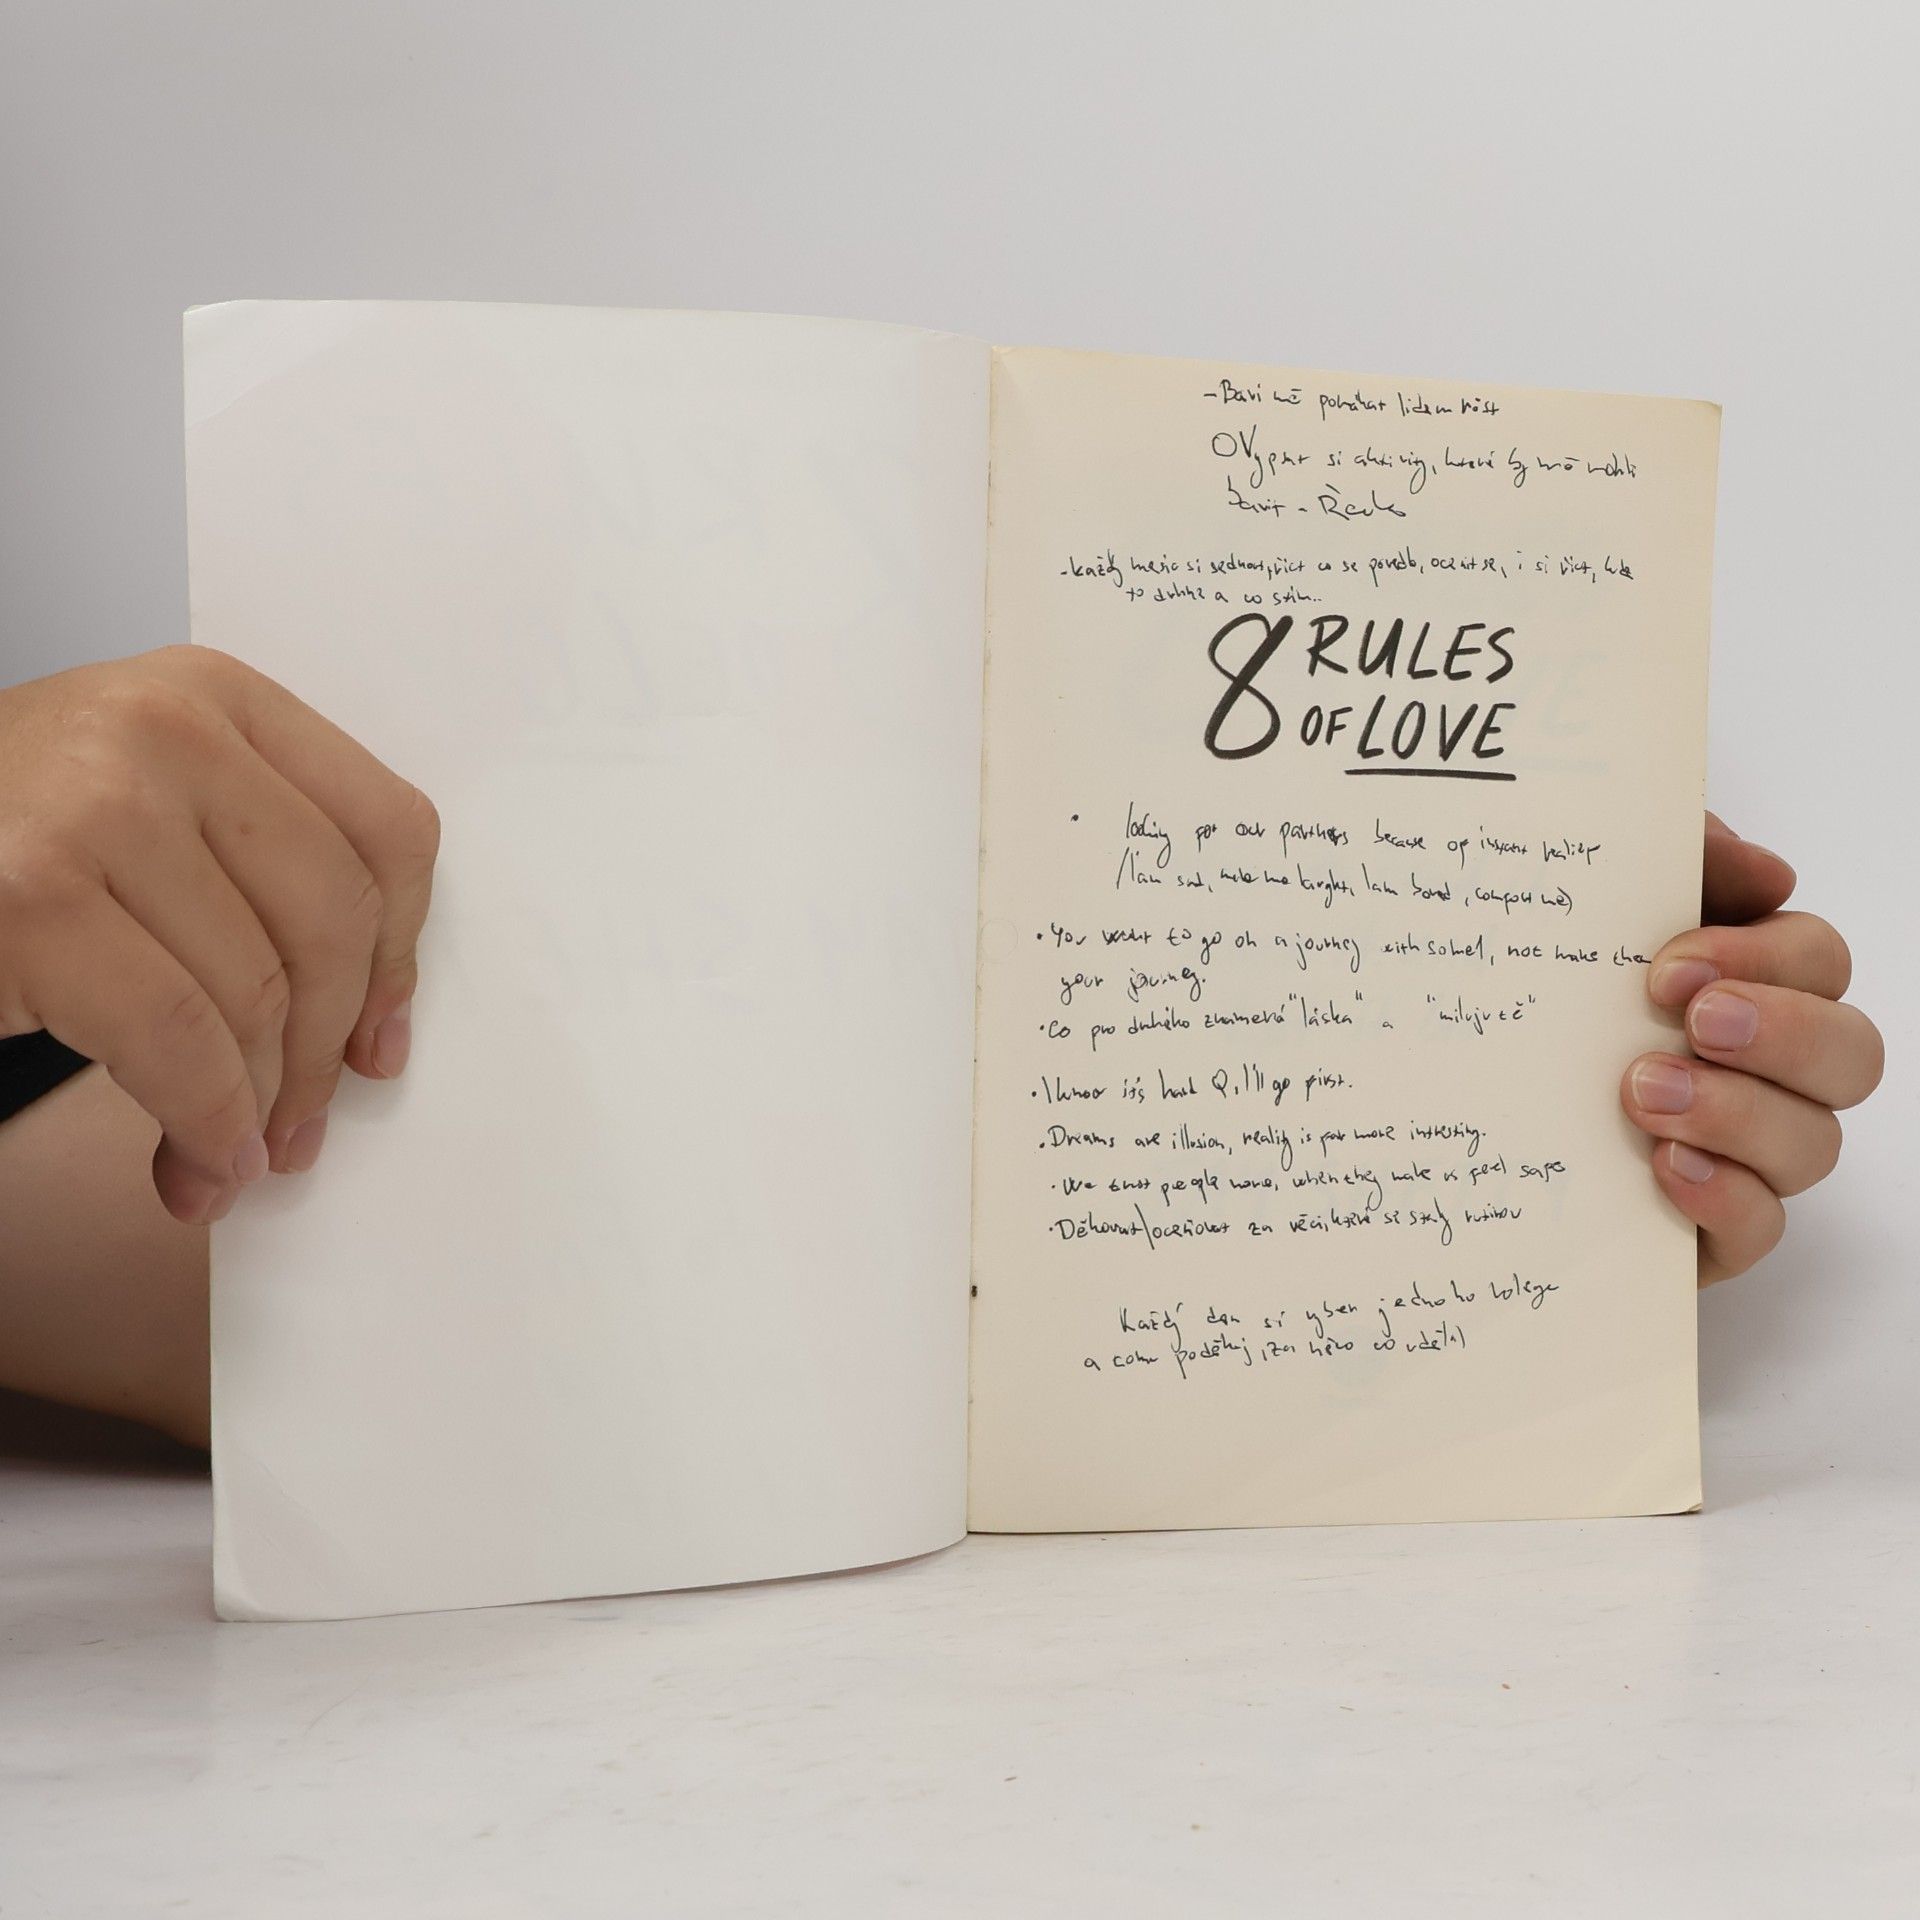 - Baví mě pomáhat lidem růst
O Vypsat si aktivity, které by mě mohli
bavit - Řecko
- každý měsíc si sednout, říct co se povedlo, ocenit se, i si říct, kde
to drhne a co s tím..
8 RULES
OF LOVE
• looking for our partners because of instant relief
/I am sad, make me laught, I am bored, comfort me)
• You want to go on a journey with some1, not make them
your journey.
• Co pro druhého znamená "láska" a "miluju tě"
• I know it's hard Q, I'll go first.
• Dreams are illusion, reality is far more intresting.
• We trust people more, when they make us feel safe
• Děkovat/oceňovat za věci, které si staly rutinou
Každý den si vyber jednoho kolegu
a tomu poděkuj, za něco co udělal